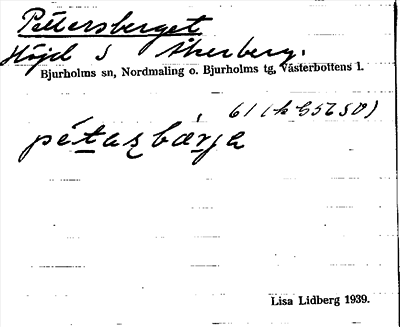 Pettersberget
Höjd S Åkerberg.
Bjurholms sn, Nordmaling o. Bjurholms tg, Västerbottens l.
61
pétaʂbærja
Lisa Lidberg 1939.